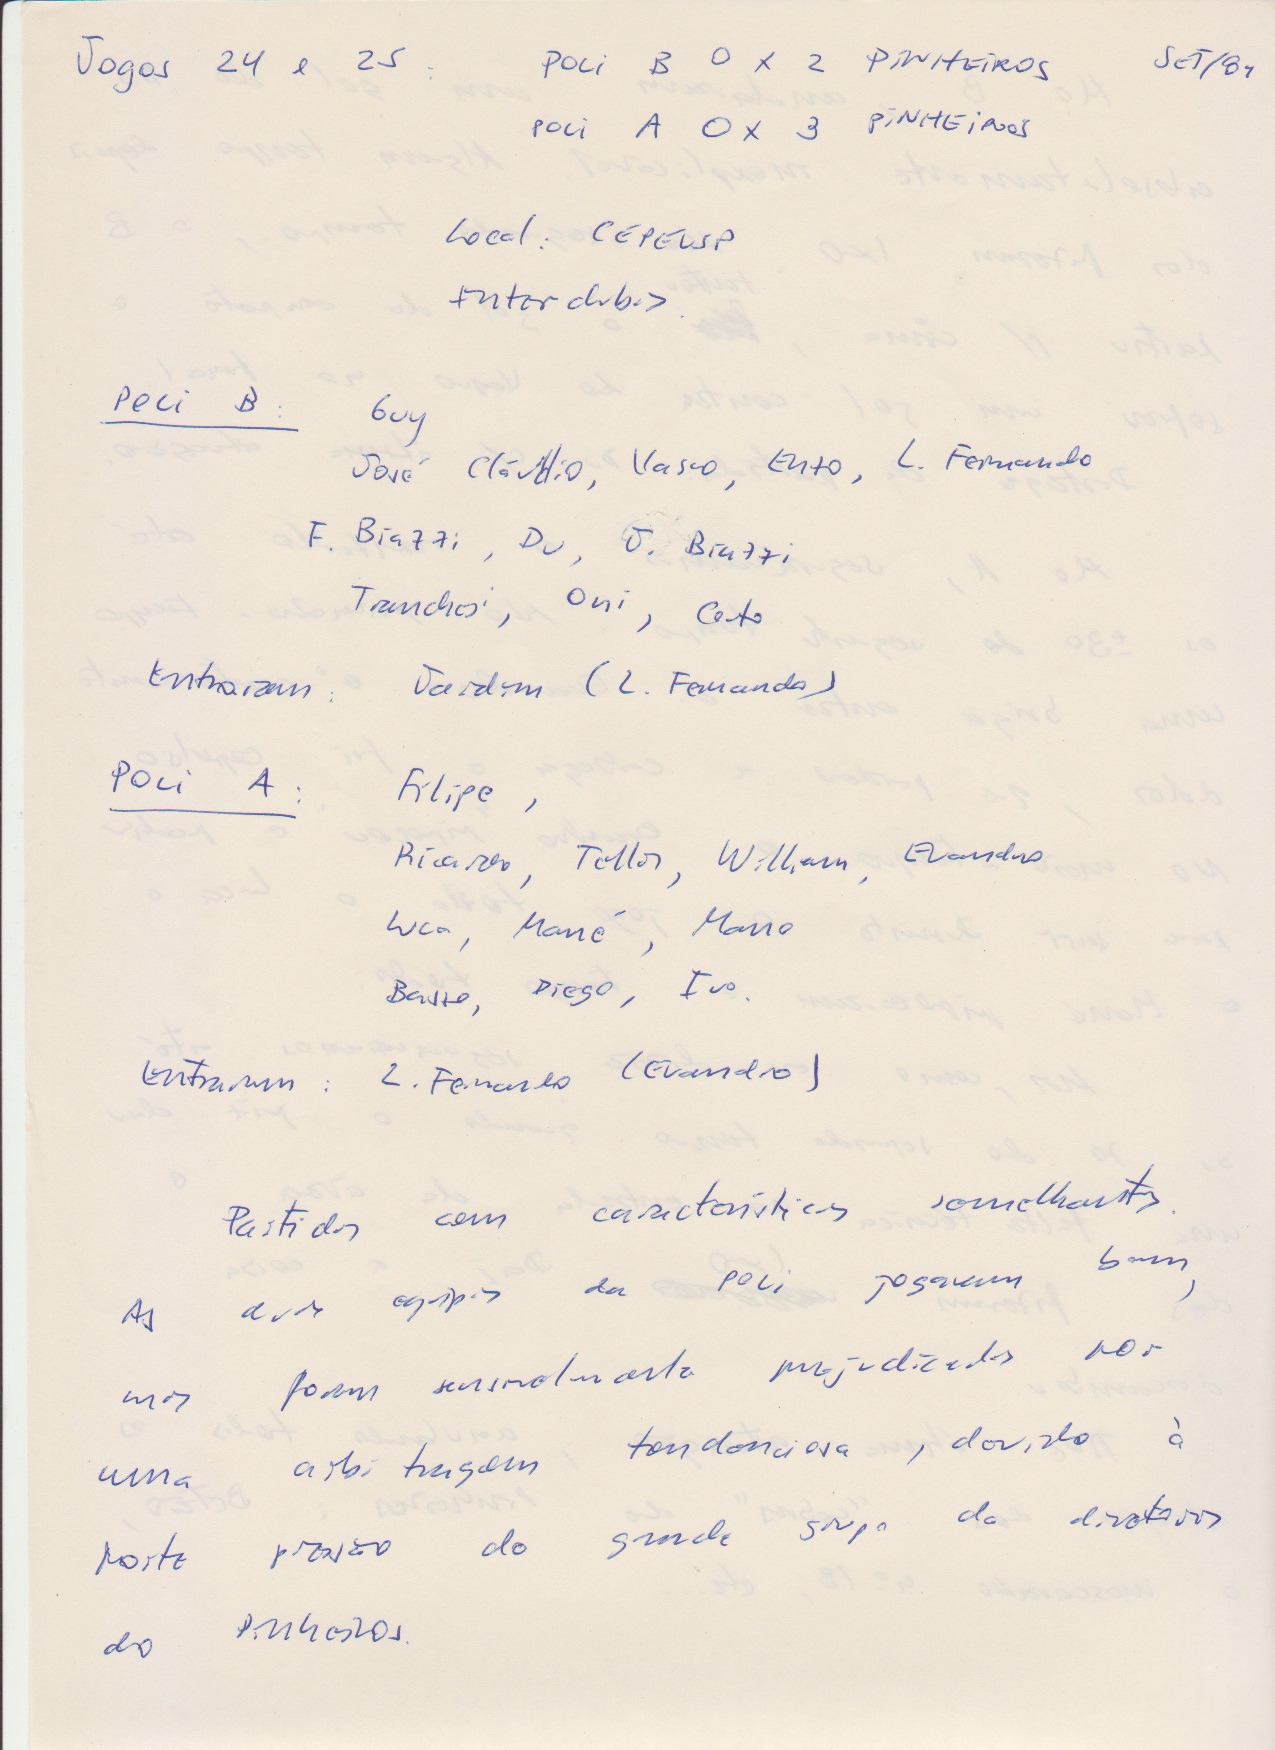 Jogos 24 e 25: POLI B 0 x 2 PINHEIROS SET/84
POLI A 0 x 3 PINHEIROS
Local: CEPEUSP
Interclubes.
POLI B: Guy
José Cláudio, Vasco, Enzo, L. Fernando
F. Biazzi, Du, J. Biazzi
Tranchesi, Oni, Cato
Entraram: Jardim (L. Fernando)
POLI A: Filipe,
Ricardo, Telles, William, Evandro
Luca, Mané, Mano
Basso, Diego, Ivo.
Entraram: L. Fernando (Evandro)
Partidas com características semelhantes.
As duas equipes da Poli jogaram bem,
mas foram sensivelmente prejudicadas por
uma arbitragem tendenciosa, devido à
forte pressão do grande grupo de diretores
do Pinheiros.